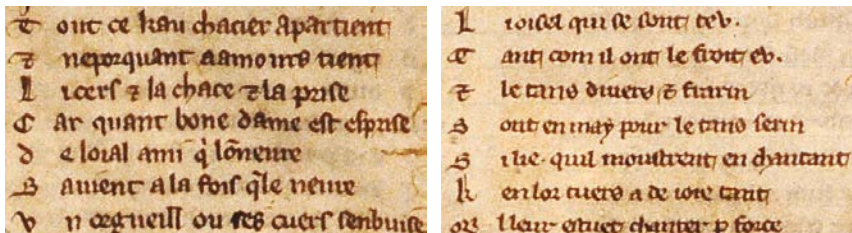 T out ce kau chacier apartient
⁊ neporquant a amours tient
L i cers ⁊ la chace ⁊ la prise
C ar quant bone dame est esprise
d e loial ami q̇ lōneure
S auient a la fois q̄le neure
V n orgueill ou ses cuers senbuise
L i oisel qui se sont teu.
T ant com il ont le froit eu.
⁊ le tans diuers ⁊ frarin
S ont en may pour le tans serin
S i lie. quil moustrent en chantant
k en lor cuers a de ioie tant
Q lleur estuet chanter p force